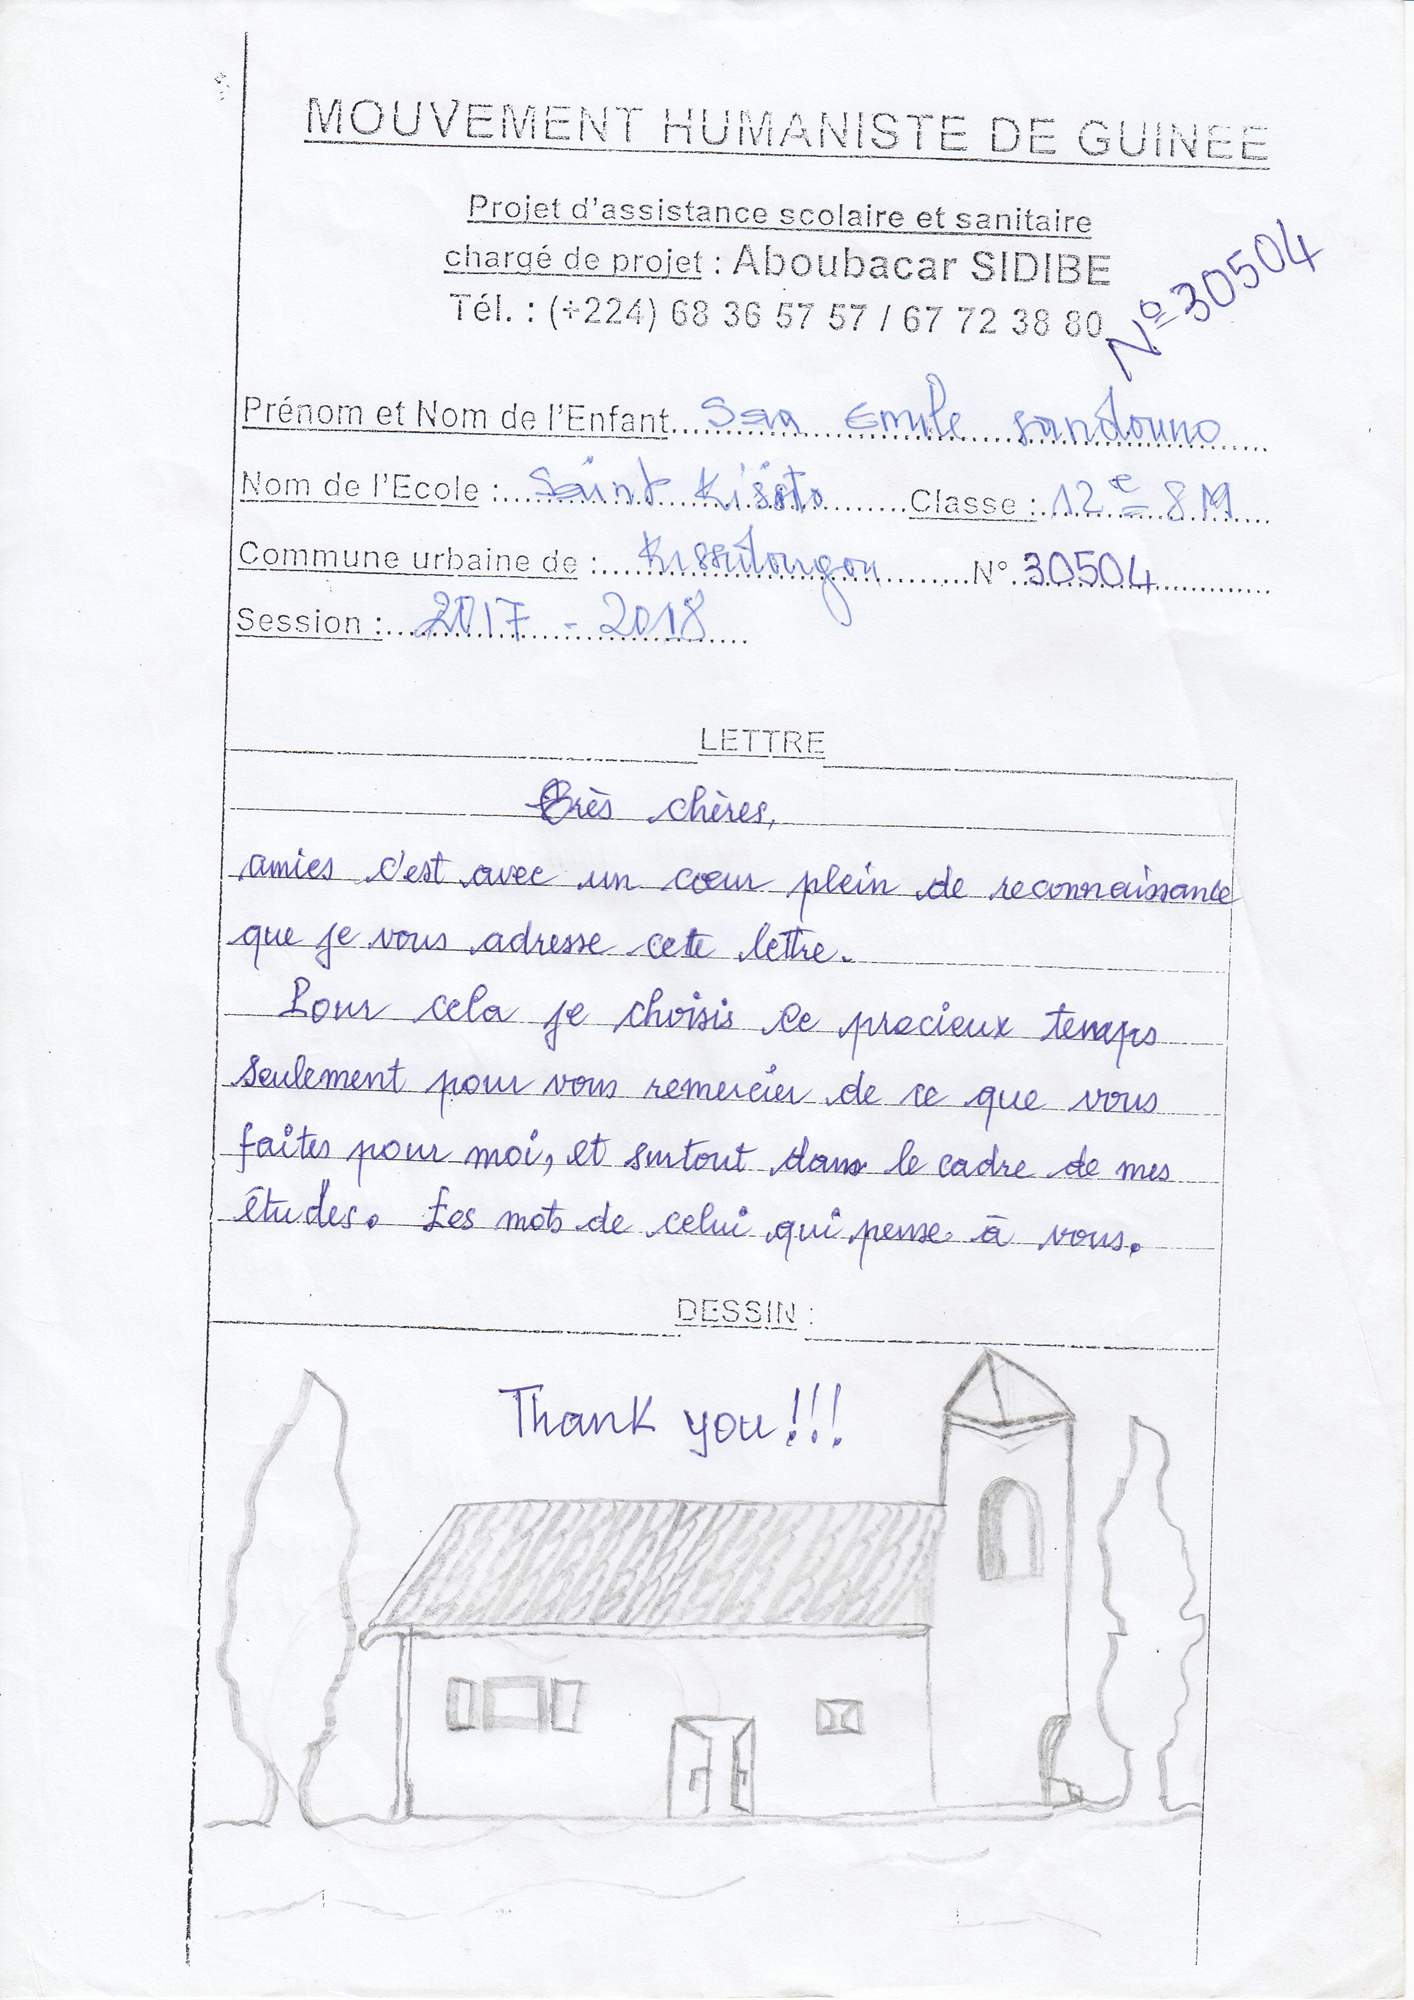 MOUVEMENT HUMANISTE DE GUINEE
Projet d'assistance scolaire et sanitaire
chargé de projet : Aboubacar SIDIBE
Tél. : (+224) 68 36 57 57 / 67 72 38 80
N° 30504
Prénom et Nom de l'Enfant Saa Emile Sandouno
Nom de l'Ecole : Saint Kisito Classe : 12e SM
Commune urbaine de : Kissidougou N° 30504
Session : 2017 - 2018
LETTRE
Très chères,
amies c'est avec un cœur plein de reconnaissance
que je vous adresse cete lettre.
Pour cela je choisis ce precieux temps
seulement pour vous remercier de ce que vous
faites pour moi, et surtout dans le cadre de mes
études. Les mots de celui qui pense à vous.
DESSIN :
Thank you!!!